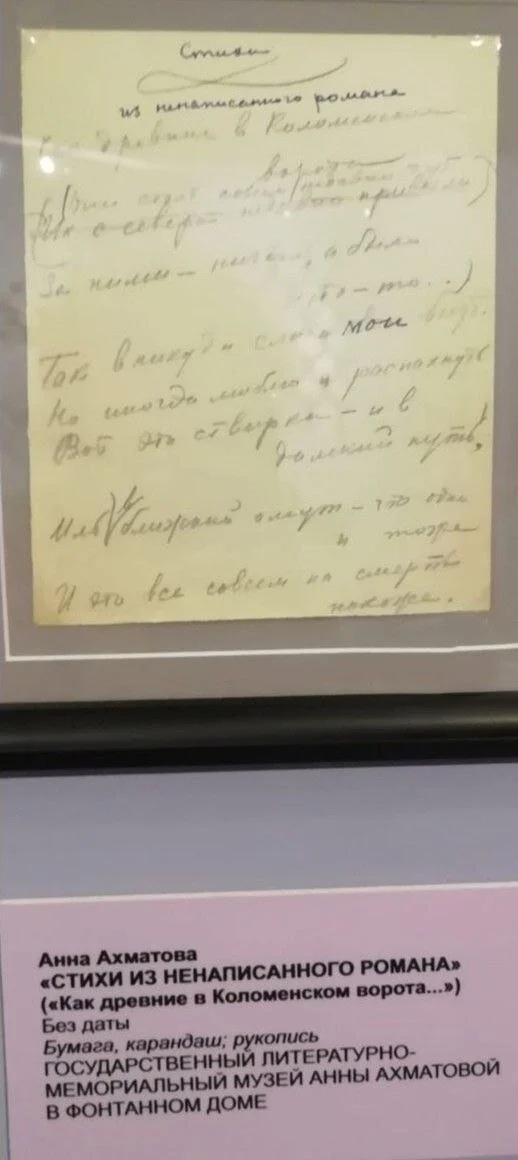 Стихи
из ненаписанного романа
Как древние в Коломенском
ворота
За ними – ничего, а было
что-то...)
Так в никуда слова мои
Но иногда люблю и распахнуть
Вот эти створки – и в
далекий путь,
Иль в ближний омут – что одно
и тоже
И это все совсем на смерть
похоже.
Анна Ахматова
«СТИХИ ИЗ НЕНАПИСАННОГО РОМАНА»
(«Как древние в Коломенском ворота...»)
Без даты
Бумага, карандаш; рукопись
ГОСУДАРСТВЕННЫЙ ЛИТЕРАТУРНО-
МЕМОРИАЛЬНЫЙ МУЗЕЙ АННЫ АХМАТОВОЙ
В ФОНТАННОМ ДОМЕ